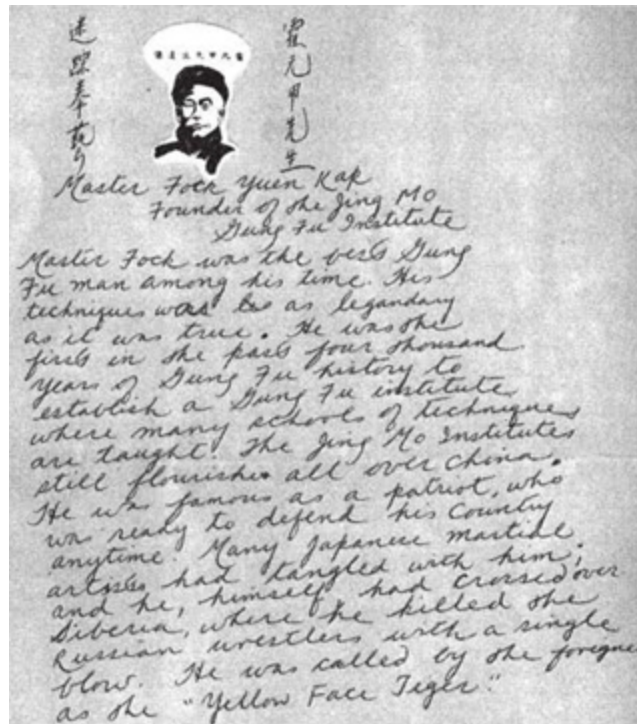 迷踪拳範
霍元甲先生
Master Fock Yuen Kap
Founder of the Jing Mo
Gung Fu Institute
Master Fock was the best Gung
Fu man among his time. His
techniques was as legendary
as it was true. He was the
first in the past four thousand
years of Gung Fu history to
establish a Gung Fu institute
where many schools of techniques
are taught. The Jing Mo Institutes
still flourishes all over China.
He was famous as a patriot, who
was ready to defend his country
anytime. Many Japanese martial
artists had tangled with him,
and he, himself, had crossed over
Siberia, where he killed the
Russian wrestlers with a single
blow. He was called by the foreigne
as the "Yellow Face Tiger."